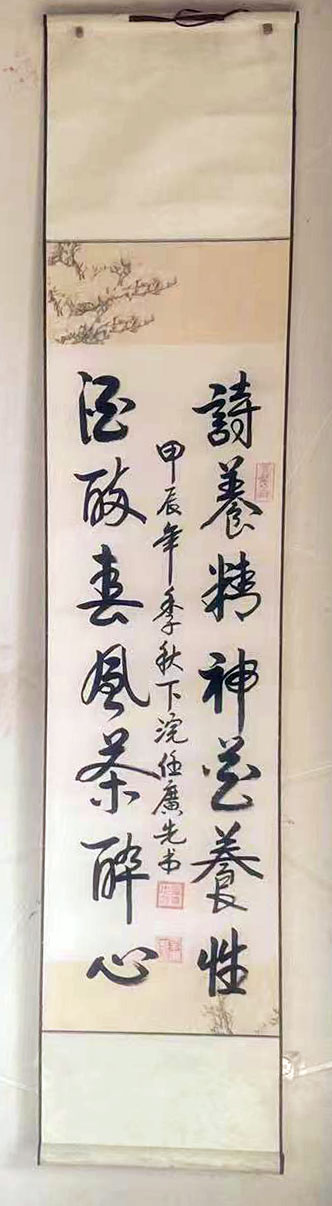 詩養精神花養性
酒春風茶醉心
甲辰年季秋下浣任廣先书